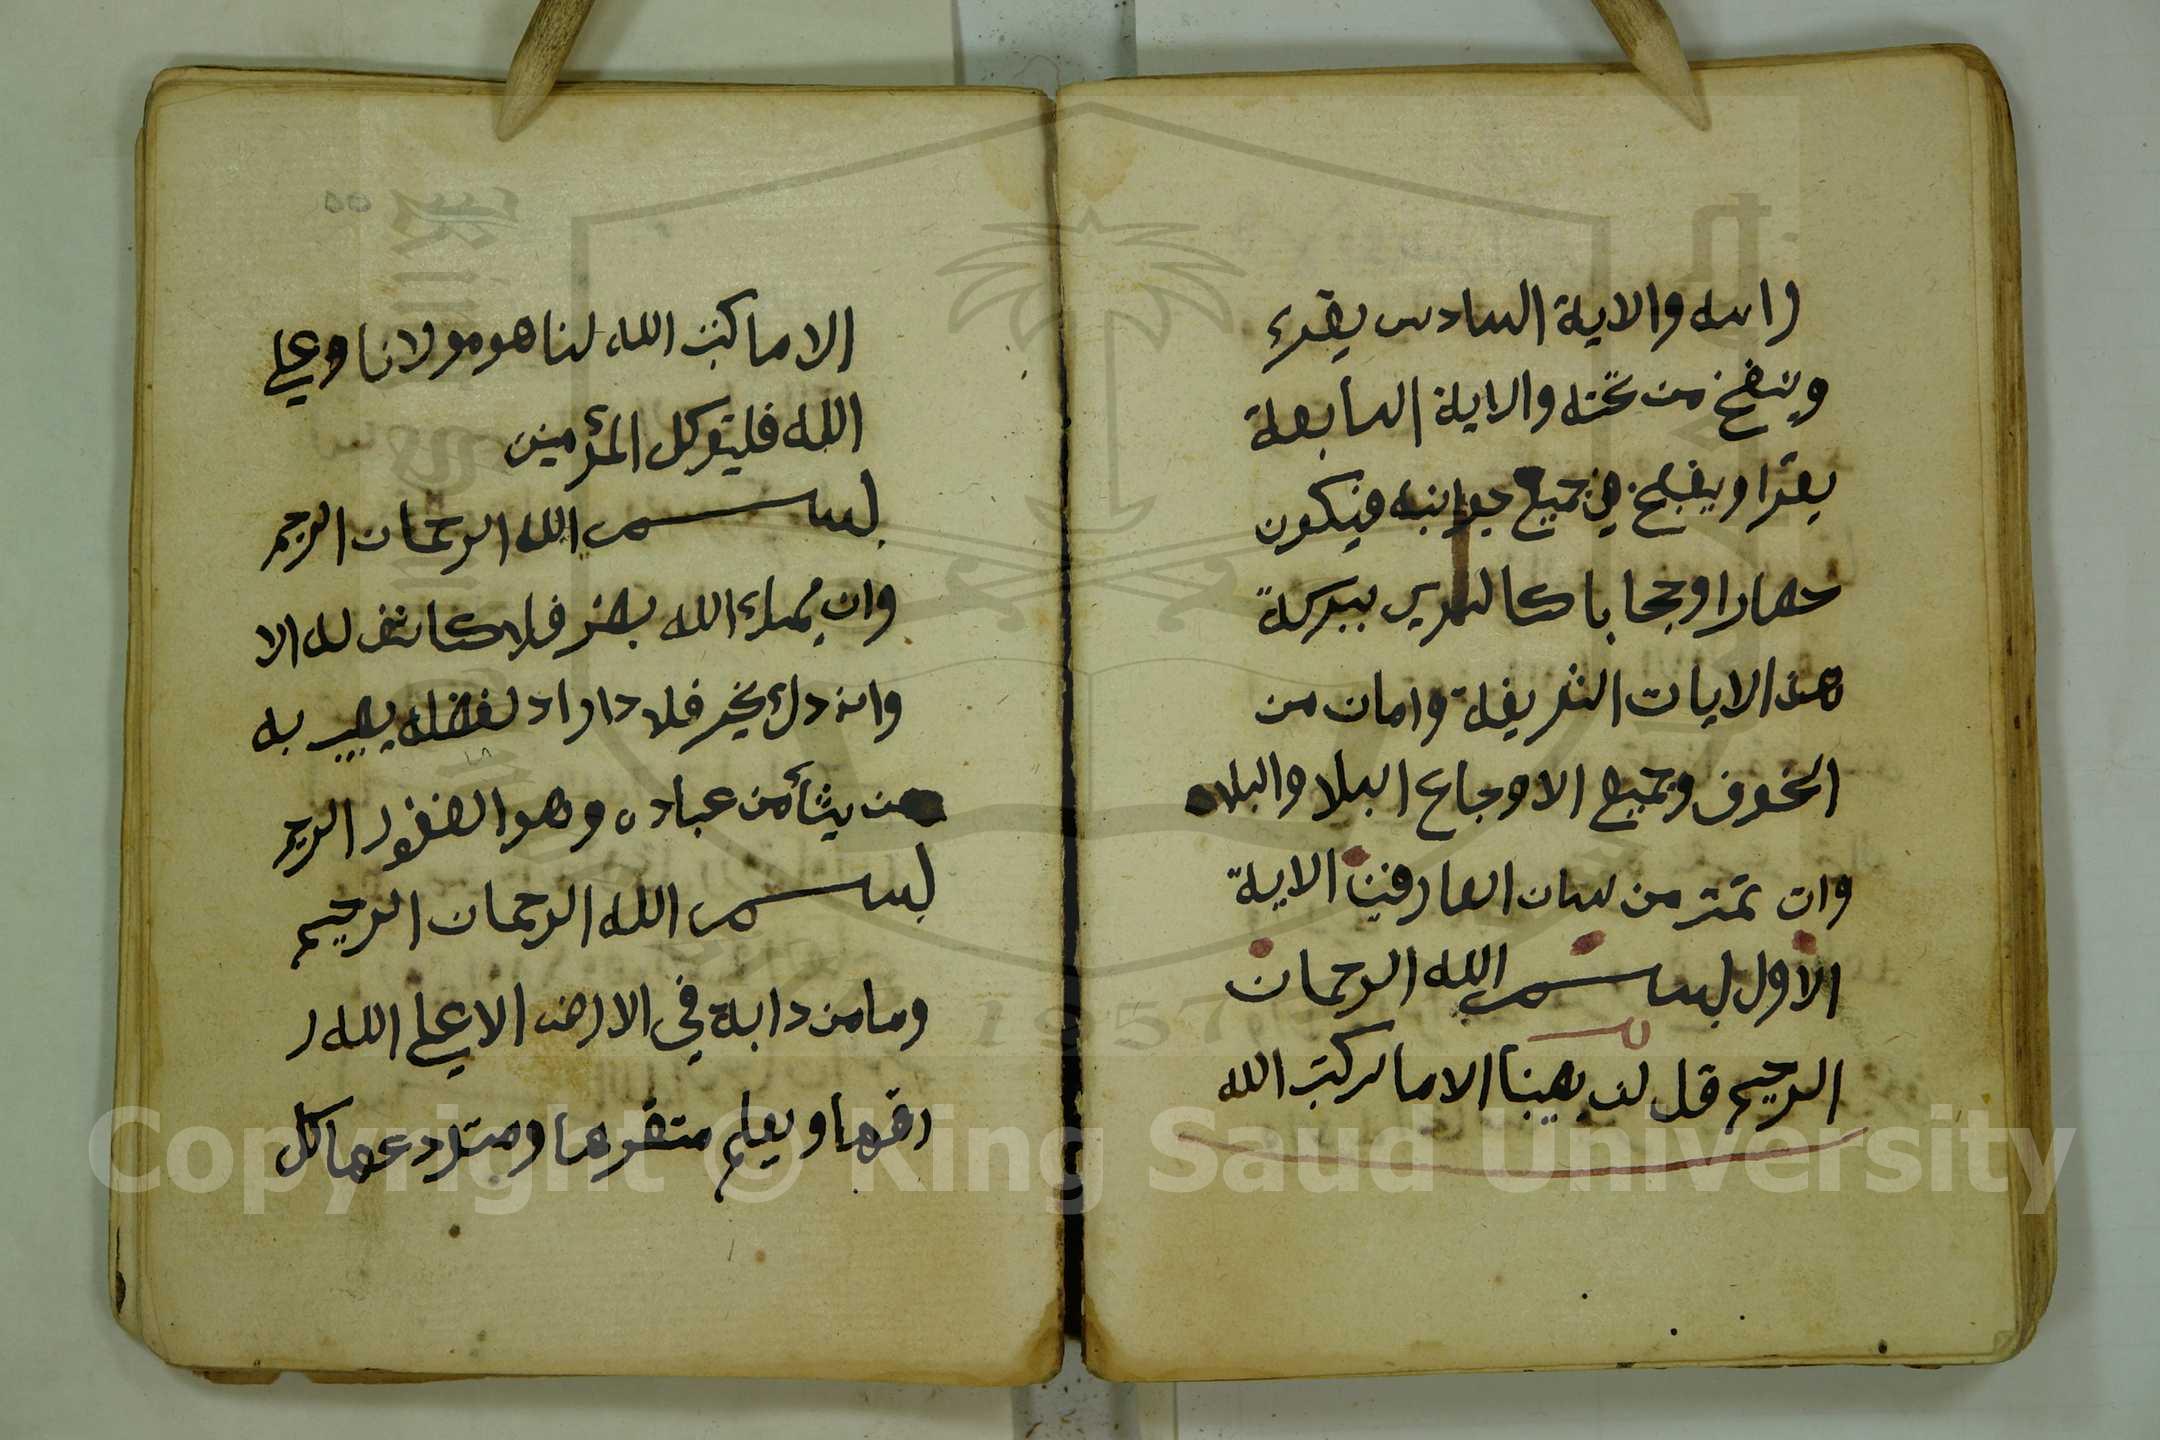 راسه والاية السادس يقرء
وينفخ من تحته والاية السابعة
يقرا وينفخ في جميع جوانبه فيكون
حصارا وحجابا كالترس ببركة
هذه الايات الشريفة وامان من
الخوف وجميع الاوجاع البلا والبلاء
وان تمتر من لسان العارفين الاية
الاول بسم الله الرحمان
الرحيم قل لن يصيبنا الا ما كتب الله
الا ما كتب الله لنا هو مولانا وعلى
الله فليتوكل المؤمنين
بسم الله الرحمان الرحيم
وان يمسك الله بضر فلا كاشف له الا
وان يردك بخير فلا راد لفضله يصيب به
من يشأ من عباده وهو الغفور الرحيم
بسم الله الرحمان الرحيم
وما من دابة في الارض الا على الله ر
زقها ويعلم مستقرها ومستودعها كل
Copyright © King Saud University
1957